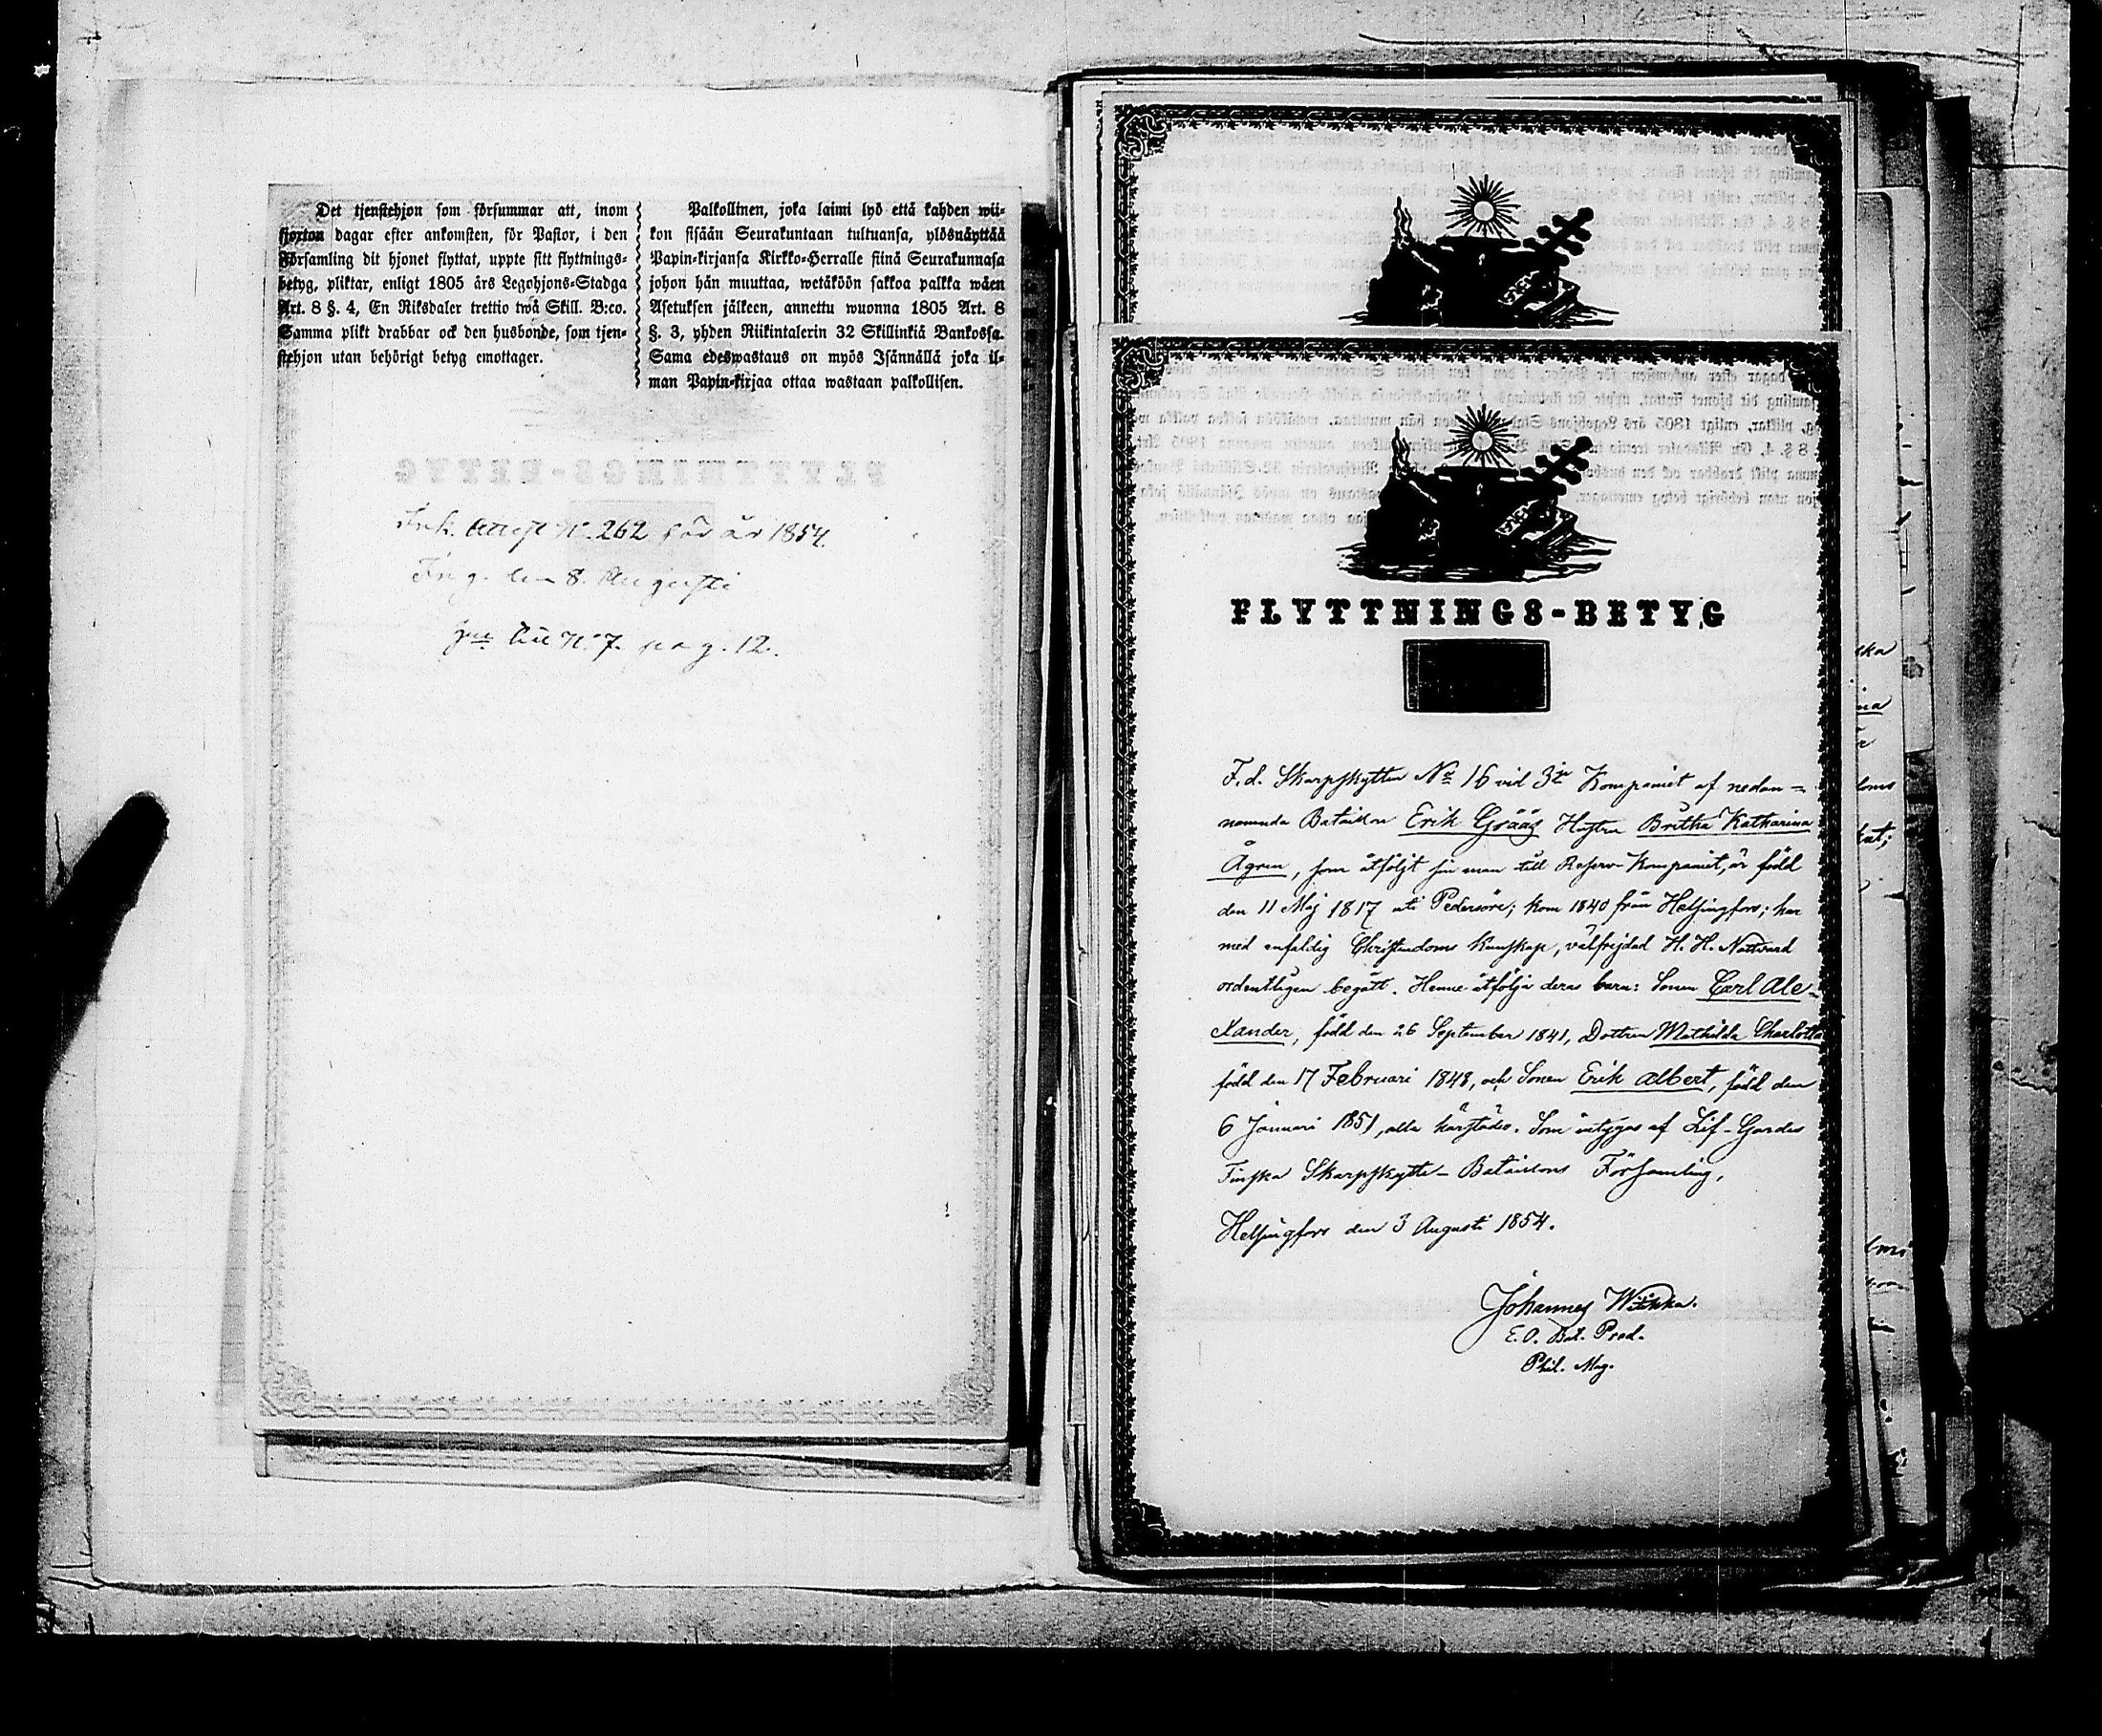 Det tjenstehjon som försummar att, inom
fjorton dagar efter ankomsten, för Pastor, i den
Församling dit hjonet flyttat, uppte sitt flyttnings-
betyg, pliktar, enligt 1805 års Legohjons-Stadga
Art. 8 §. 4, En Riksdaler trettio twå Skill. B:co.
Samma plikt drabbar ock den husbonde, som tjen-
stehjon utan behörigt betyg emottager.
Palkollinen, joka laimi lyö että kahden wii-
kon sisään Seurakuntaan tultuansa, ylösnäyttää
Papin-kirjansa Kirkko-Herralle siinä Seurakunnasa
johon hän muuttaa, wetäköön sakkoa palkka wäen
Asetuksen jälkeen, annettu wuonna 1805 Art. 8
§. 3, yhden Riikintalerin 32 Skillinkiä Bankossa.
Sama edeswastaus on myös Isännällä joka il-
man Papin-kirjaa ottaa wastaan palkollisen.
Ink. attest N:o 262 för år 1854.
Ing. den 8. Augusti
N:o 7. pag. 12.
FLYTTNINGS-BETYG
F.d. Skarpskytten No 16 vid 3je Kompaniet af nedan-
nemnda Bataillon Erik Grääs Hustru Britha Katharina
Ågren, som åtföljt sin man till Reserv-Kompaniet, är född
den 11 Maj 1817 uti Pedersöre; kom 1840 från Helsingfors; har
med enfaldig Christendoms kunskap, välfrejdad H. H. Nattvard
ordentligen begått. Henne åtfölja deras barn: Sonen Carl Ale-
xander, född den 26 September 1841, Dottren Mathilda Charlotta
född den 17 Februari 1848, och Sonen Erik Albert, född den
6 Januari 1851, alla härstädes. Som intygas af Lif-Gardes
Finska Skarpskytte-Bataillons Församling,
Helsingfors den 3 Augusti 1854.
Johannes
E. O. Bat. Pred.
Phil. Mag.